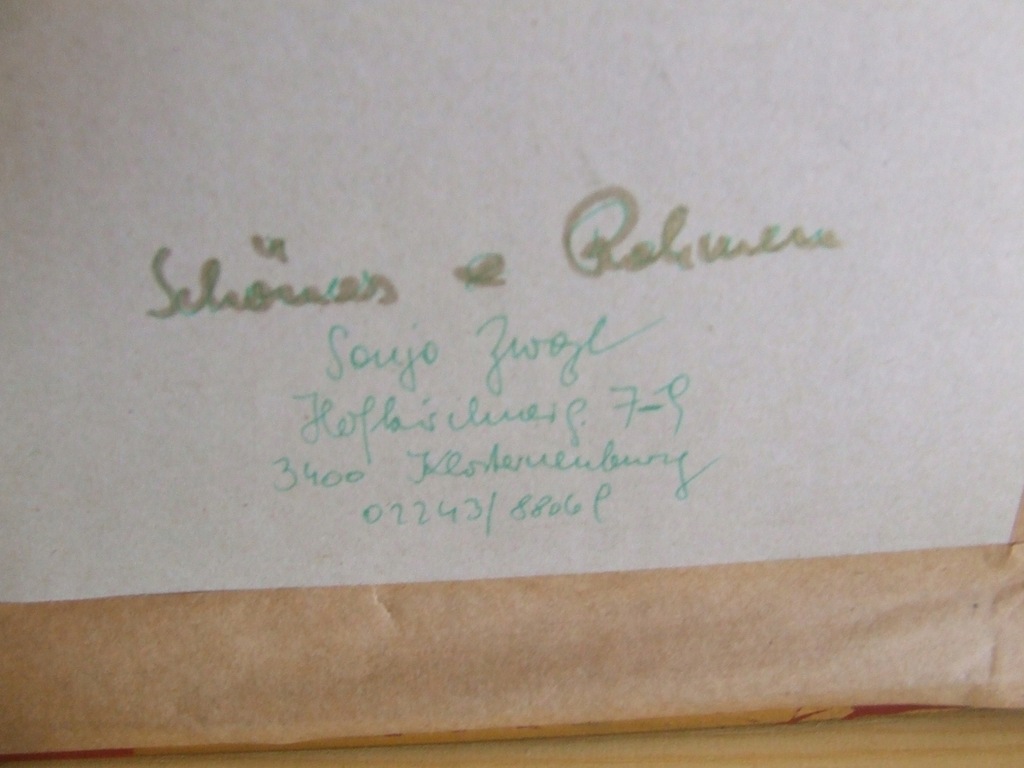 Schönes & Rahmen
Sonja Zwazl
Hofkirchnerg. 7-9
3400 Klosterneuburg
02243/88069